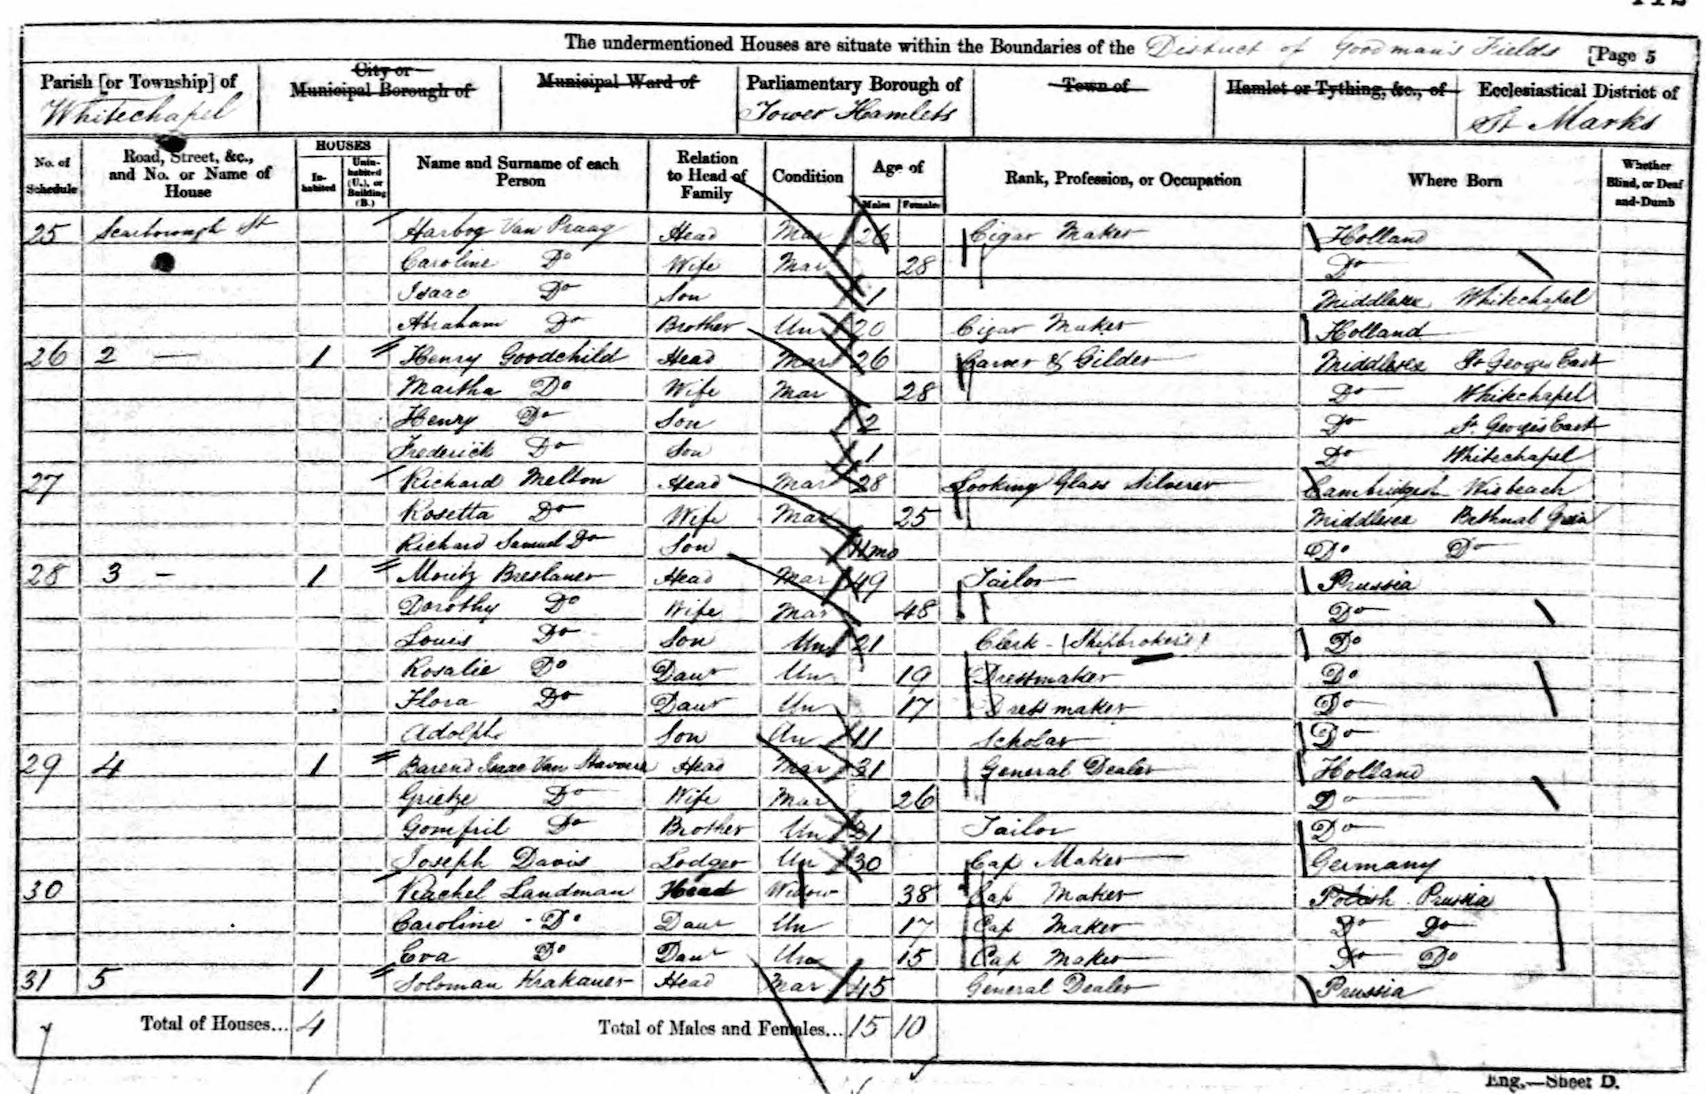 The undermentioned Houses are situate within the Boundaries of the District of Goodman's Fields [Page 5
Parish [or Township] of Whitechapel
City or Municipal Borough of
Municipal Ward of
Parliamentary Borough of Tower Hamlets
Town of
Hamlet or Tything, &c., of
Ecclesiastical District of St Marks
No. of Schedule
Road, Street, &c., and No. or Name of House
HOUSES
Inhabited
Uninhabited (U.), or Building (B.)
Name and Surname of each Person
Relation to Head of Family
Condition
Age of
Males Females
Rank, Profession, or Occupation
Where Born
Whether Blind, or Deaf-and-Dumb
25 Scarborough St Hartog Van Praag Head Mar 26 Cigar Maker Holland
Caroline Do Wife Mar 28 Do
Isaac Do Son 1 Middlesex Whitechapel
Abraham Do Brother Un 20 Cigar Maker Holland
26 2 — 1 Henry Goodchild Head Mar 26 Carver & Gilder Middlesex St Georges East
Martha Do Wife Mar 28 Do Whitechapel
Henry Do Son 2 Do St. Georges East
Frederick Do Son 1 Do Whitechapel
27 Richard Melton Head Mar 28 Looking Glass Silverer Cambridgesh Wisbeach
Rosetta Do Wife Mar 25 Middlesex Bethnal Green
Richard Samuel Do Son mo Do Do
28 3 — 1 Moritz Breslauer Head Mar 49 Tailor Prussia
Dorothy Do Wife Mar 48 Do
Louis Do Son Un 21 Clerk (Shipbroker's) Do
Rosalie Do Daur Un 19 Dressmaker Do
Flora Do Daur Un 17 Dressmaker Do
Adolph Son Un 11 Scholar Do
29 4 1 Barend Isaac Van Stavoren Head Mar 31 General Dealer Holland
Grietze Do Wife Mar 26 Do
Gomfril Do Brother Un 31 Tailor Do
Joseph Davis Lodger Un 30 Cap Maker Germany
30 Rachel Landman Head Widow 38 Cap Maker Polish Prussia
Caroline Do Daur Un 17 Cap Maker Do Do
Eva Do Daur Un 15 Cap Maker Do Do
31 5 1 Soloman Krakauer Head Mar 45 General Dealer Prussia
Total of Houses... 4 Total of Males and Females... 15 10
Eng.—Sheet D.